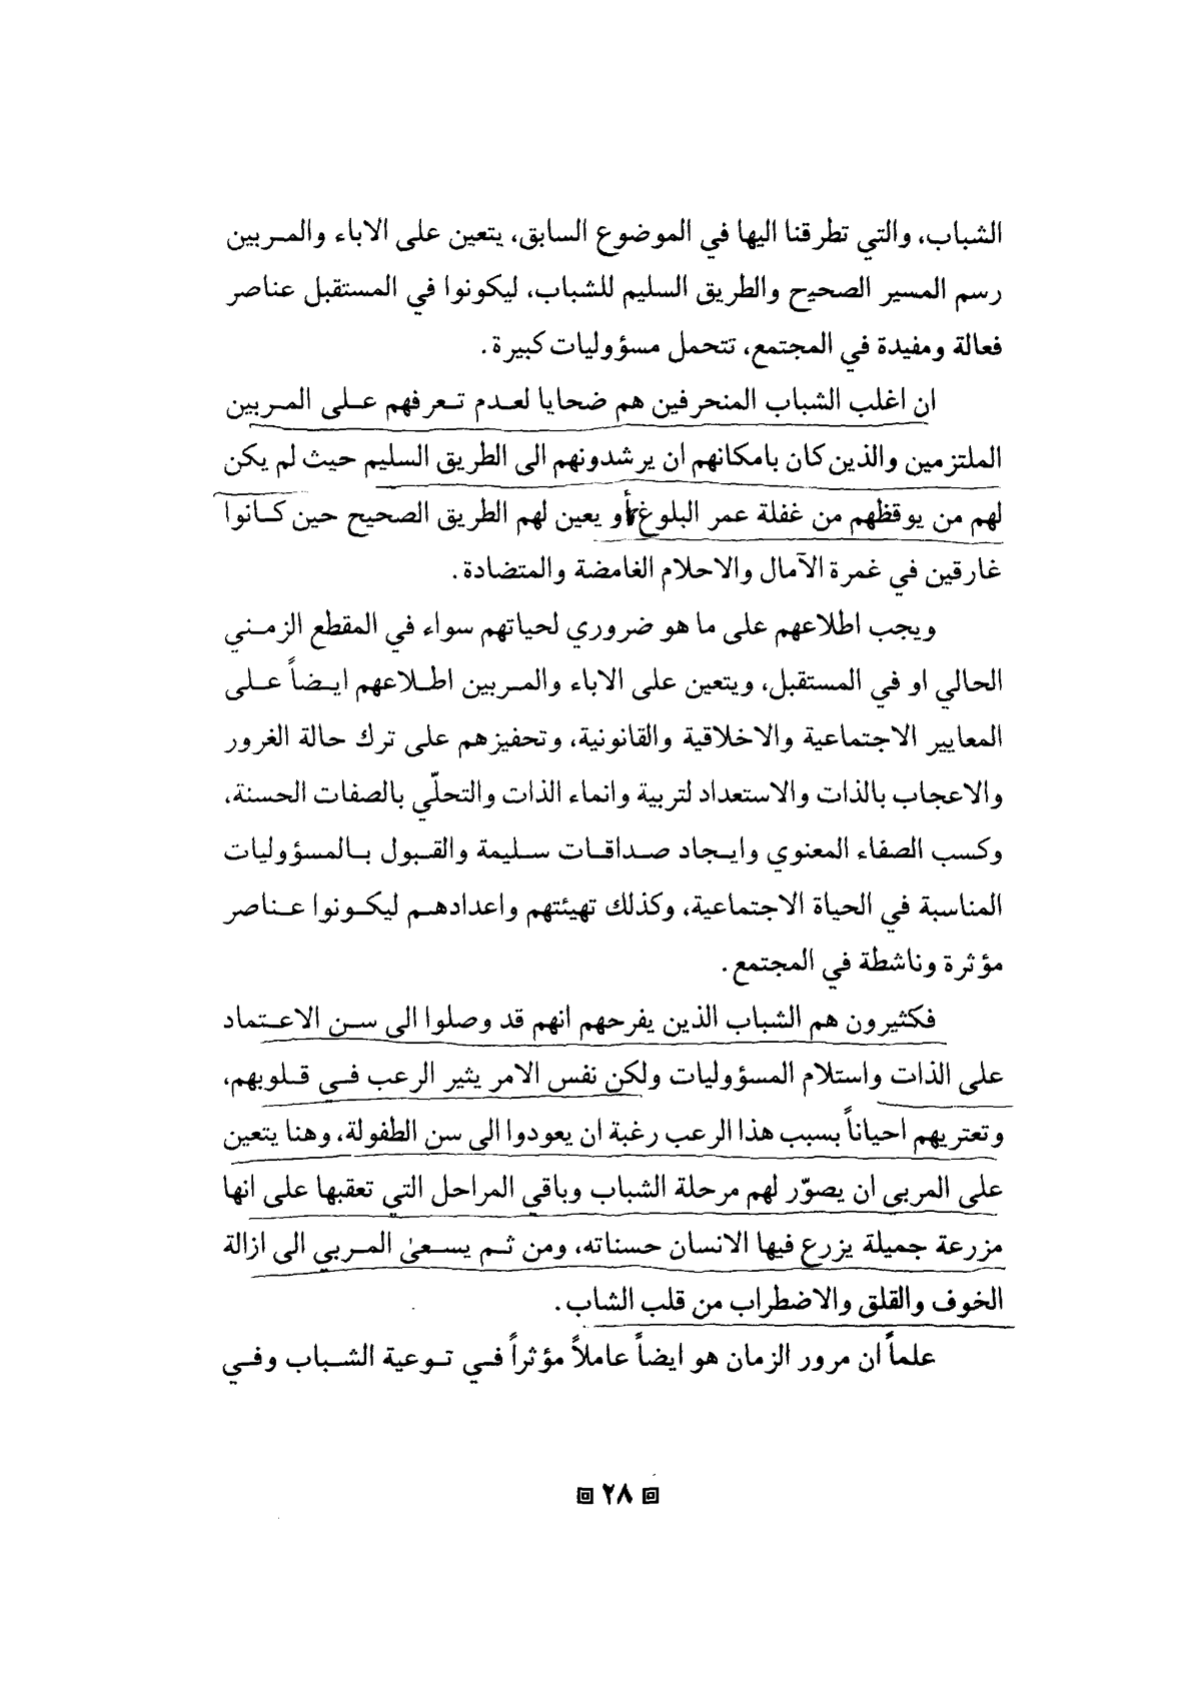 الشباب، والتي تطرقنا اليها في الموضوع السابق، يتعين على الاباء والمـربين
رسم المسير الصحيح والطريق السليم للشباب، ليكونوا في المستقبل عناصر
فعالة ومفيدة في المجتمع، تتحمل مسؤوليات كبيرة.
ان اغلب الشباب المنحرفين هم ضحايا لعـدم تـعرفهم عـلى المـربين
الملتزمين والذين كان بامكانهم ان يرشدونهم الى الطريق السليم حيث لم يكن
لهم من يوقظهم من غفلة عمر البلوغ أو يعين لهم الطريق الصحيح حين كـانوا
غارقين في غمرة الآمال والاحلام الغامضة والمتضادة.
ويجب اطلاعهم على ما هو ضروري لحياتهم سواء في المقطع الزمـني
الحالي او في المستقبل، ويتعين على الاباء والمـربين اطـلاعهم ايـضاً عـلى
المعايير الاجتماعية والاخلاقية والقانونية، وتحفيزهم على ترك حالة الغرور
والاعجاب بالذات والاستعداد لتربية وانماء الذات والتحلّي بالصفات الحسنة،
وكسب الصفاء المعنوي وايـجاد صـداقـات سـليمة والقـبول بـالمسؤوليات
المناسبة في الحياة الاجتماعية، وكذلك تهيئتهم واعدادهـم ليكـونوا عـناصر
مؤثرة وناشطة في المجتمع.
فكثيرون هم الشباب الذين يفرحهم انهم قد وصلوا الى سـن الاعـتماد
على الذات واستلام المسؤوليات ولكن نفس الامر يثير الرعب فـي قـلوبهم،
وتعتريهم احياناً بسبب هذا الرعب رغبة ان يعودوا الى سن الطفولة، وهنا يتعين
على المربي ان يصوّر لهم مرحلة الشباب وباقي المراحل التي تعقبها على انها
مزرعة جميلة يزرع فيها الانسان حسناته، ومن ثـم يسـعىٰ المـربي الى ازالة
الخوف والقلق والاضطراب من قلب الشاب.
علماً ان مرور الزمان هو ايضاً عاملاً مؤثراً فـي تـوعية الشـباب وفـي
٢٨